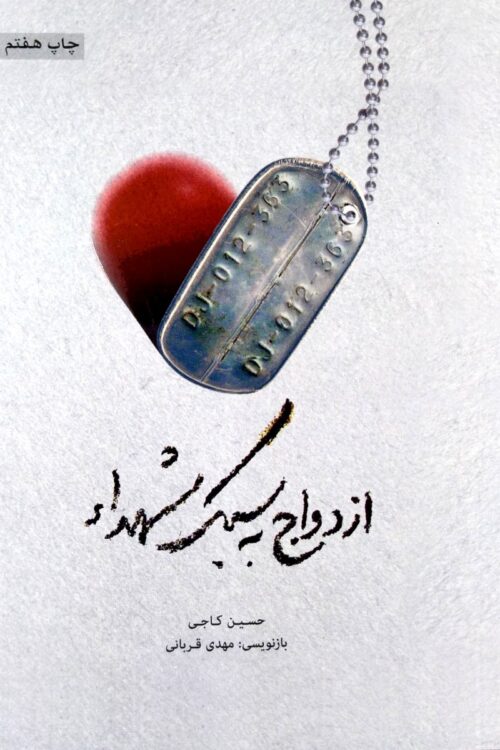 چاپ هفتم
DJ-012-363
DJ-012-363
ازدواج به سبک شهداء
حسین کاجی
بازنویسی: مهدی قربانی